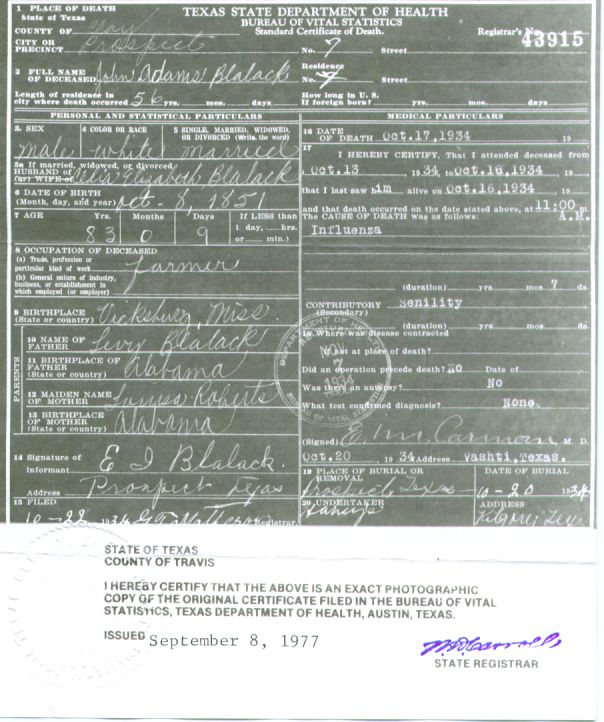 1 PLACE OF DEATH
State of Texas
TEXAS STATE DEPARTMENT OF HEALTH
BUREAU OF VITAL STATISTICS
Standard Certificate of Death.
COUNTY OF Clay
Registrar's No. 43915
CITY OR PRECINCT Prospect
No. 7 Street
2 FULL NAME OF DECEASED John Adams Blalack
Residence No. 7 Street
Length of residence in city where death occurred 56 yrs. mos. days
How long in U. S. If foreign born? yrs. mos. days
PERSONAL AND STATISTICAL PARTICULARS
3. SEX
4 COLOR OR RACE
5 SINGLE, MARRIED, WIDOWED, OR DIVORCED (Write the word)
male white married
5a If married, widowed, or divorced
HUSBAND OF (or) WIFE OF Elizabeth Blalack
6 DATE OF BIRTH (Month, day, and year) Oct. 8, 1851
7 AGE Yrs. Months Days If LESS than 1 day,....hrs. or......min.)
83 0 9
8 OCCUPATION OF DECEASED
(a) Trade, profession or particular kind of work farmer
(b) General nature of industry, business, or establishment in which employed (or employer)
9 BIRTHPLACE (State or country) Vicksburg, Miss.
PARENTS
10 NAME OF FATHER Levi Blalack
11 BIRTHPLACE OF FATHER (State or country) Alabama
12 MAIDEN NAME OF MOTHER Roberts
13 BIRTHPLACE OF MOTHER (State or country) Alabama
14 Signature of Informant E J Blalack.
Address Prospect Texas
15 FILED
10-22 1934 Registrar.
MEDICAL PARTICULARS
16 DATE OF DEATH Oct.17,1934 19
17
I HEREBY CERTIFY, That I attended deceased from
Oct.13 19 34, to Oct.16,1934 19
that I last saw him alive on Oct.16,1934 19
and that death occurred on the date stated above, at 11:00 m
A.M.
The CAUSE OF DEATH was as follows:
Influenza
(duration) yrs. mos. 7 ds.
CONTRIBUTORY (Secondary) Senility
(duration) yrs. mos. ds.
18 Where was disease contracted
If not at place of death?
Did an operation precede death? No Date of
Was there an autopsy? No
What test confirmed diagnosis? None.
(Signed) E. M. Carman M. D.
Oct.20 19 34 Address Vashti, Texas.
19 PLACE OF BURIAL OR REMOVAL
DATE OF BURIAL
Texas 10-20 1934
20 UNDERTAKER
ADDRESS
STATE OF TEXAS
COUNTY OF TRAVIS
I HEREBY CERTIFY THAT THE ABOVE IS AN EXACT PHOTOGRAPHIC
COPY OF THE ORIGINAL CERTIFICATE FILED IN THE BUREAU OF VITAL
STATISTICS, TEXAS DEPARTMENT OF HEALTH, AUSTIN, TEXAS.
ISSUED September 8, 1977
STATE REGISTRAR